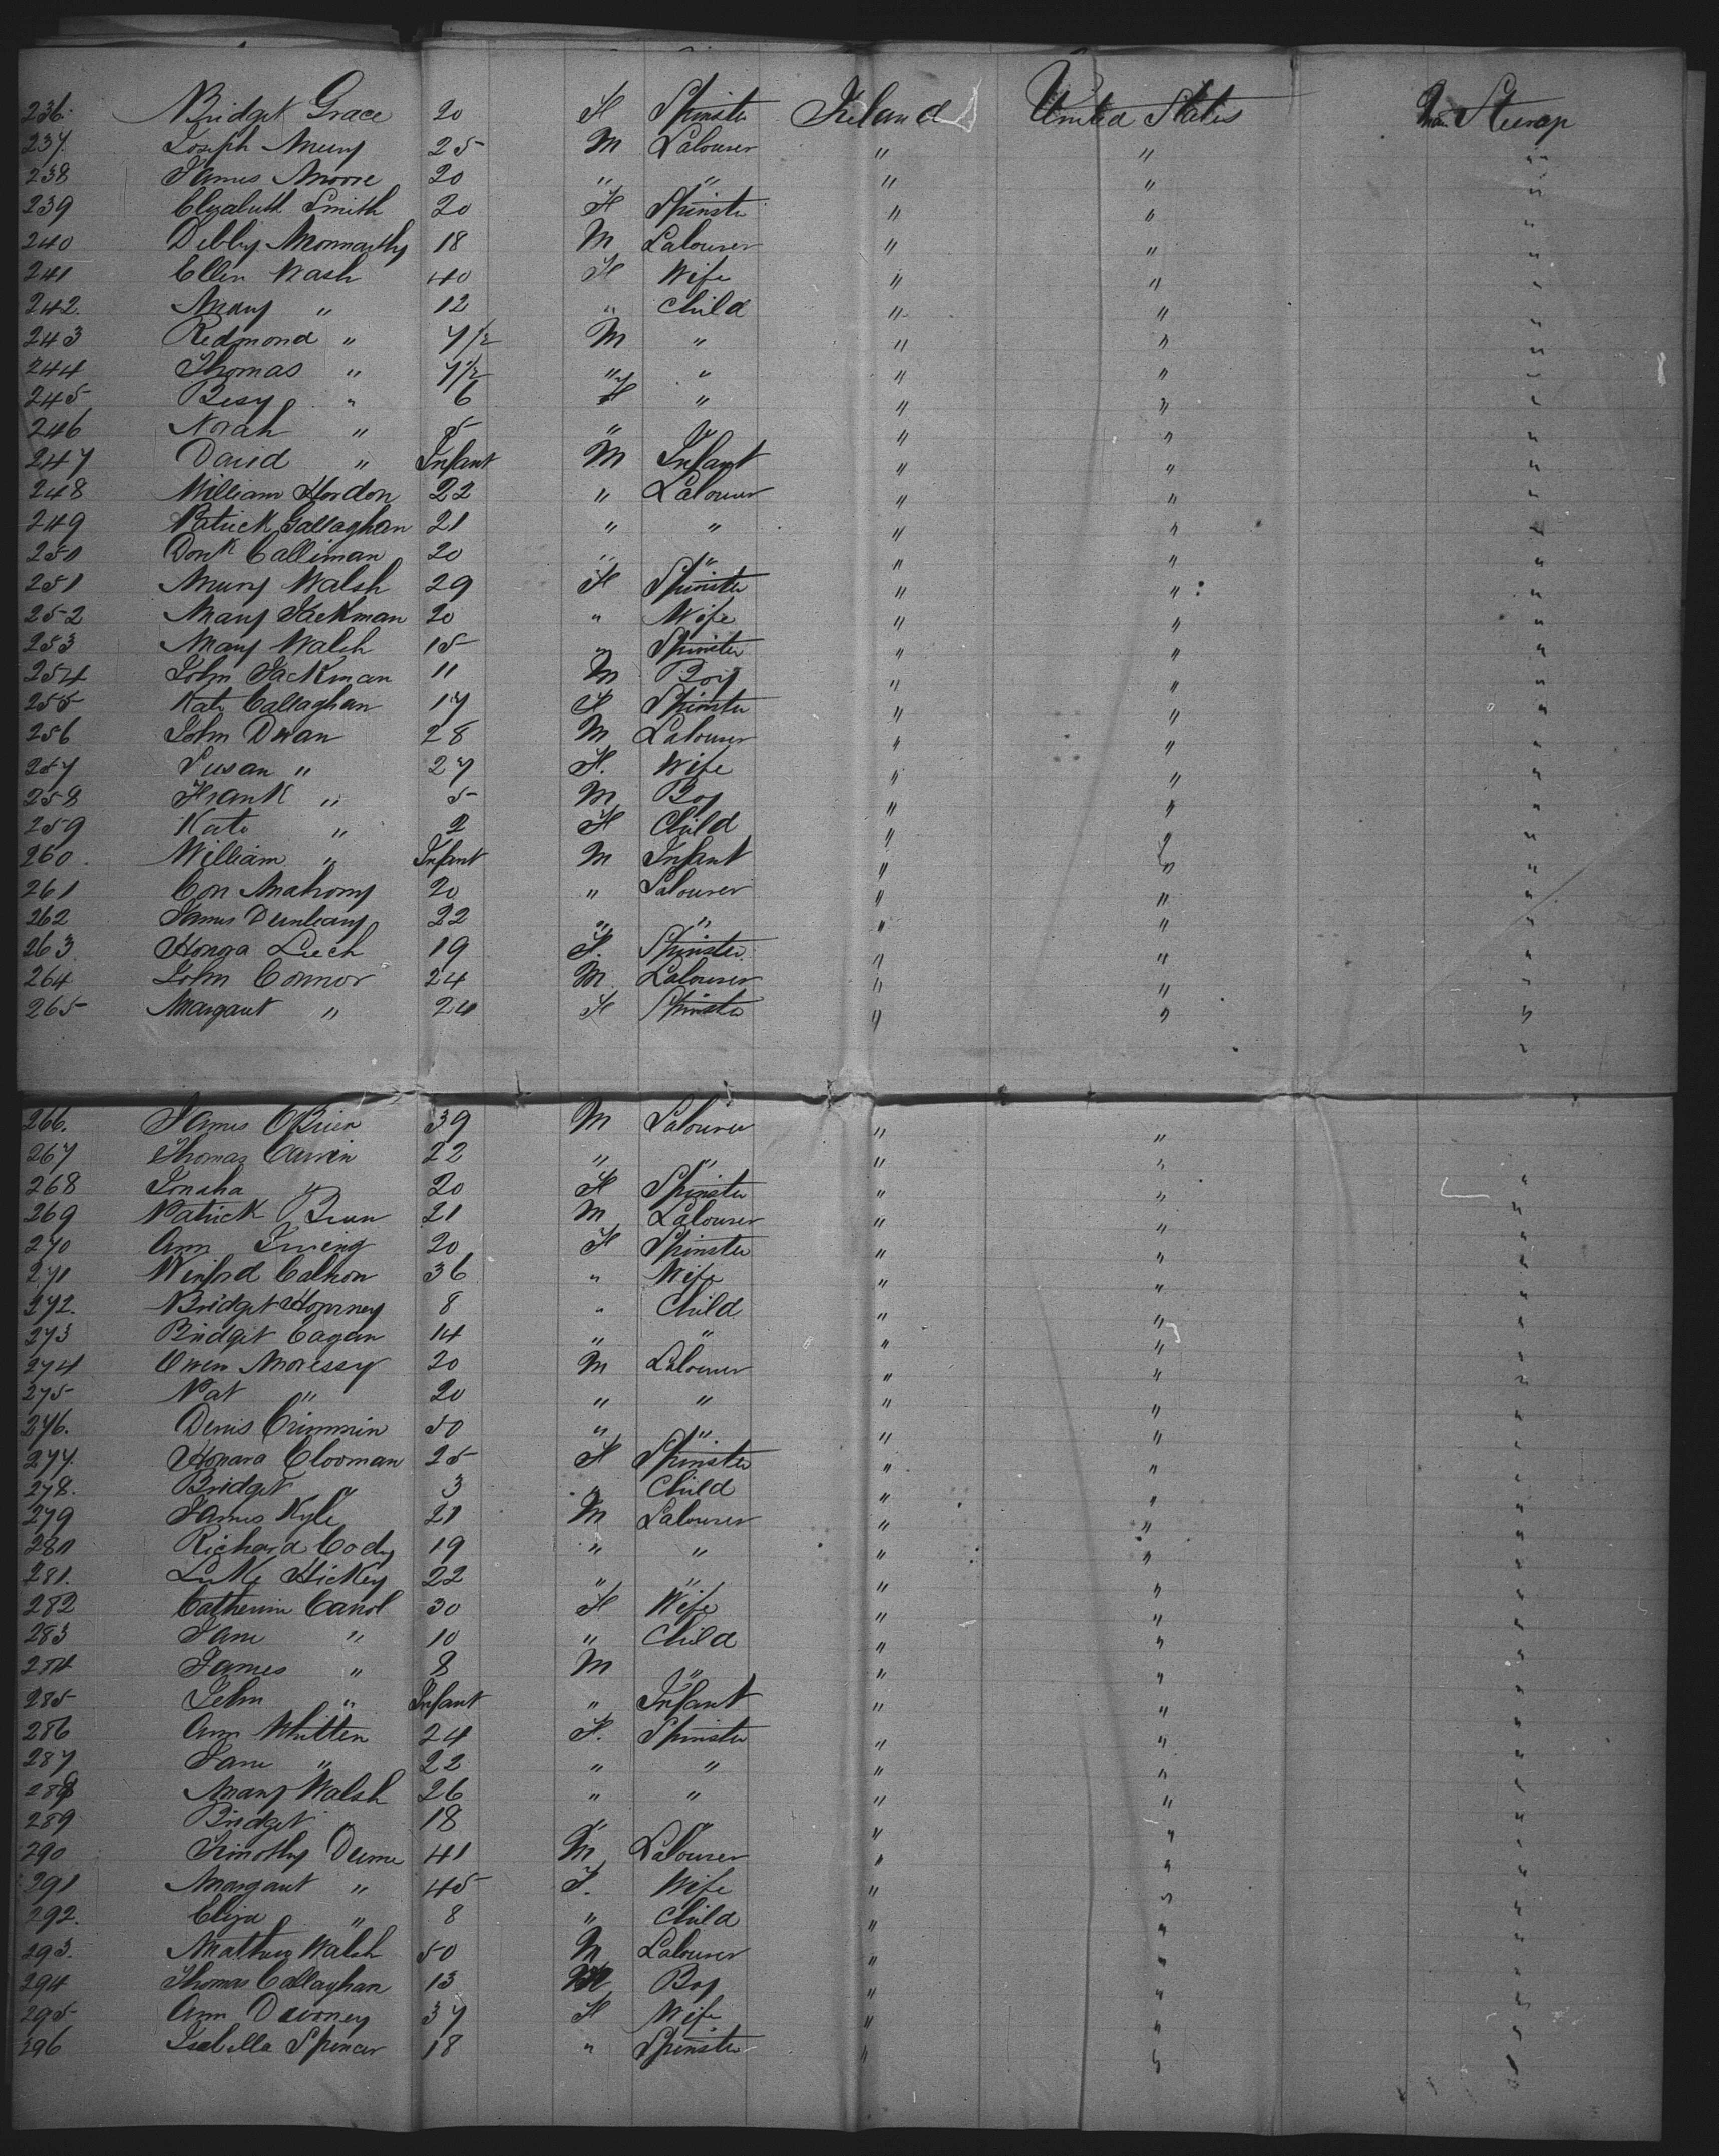 236. Bridget Grace 20 F Spinster Ireland United States Steerage
237 Joseph 25 M Labourer " " "
238 James Moore 20 " " " " "
239 Elizabeth Smith 20 F Spinster " " "
240 Debby 18 M Labourer " " "
241 Ellen Wash 40 F Wife " " "
242. Mary " 12 " Child " " "
243 Redmond " 7½ M " " " "
244 Thomas " 7½ " " " " "
245 Besy " 6 F " " " "
246 Norah " 5 " " " " "
247 David " Infant M Infant " " "
248 William Hordon 22 " Labourer " " "
249 Patrick Gallaghan 21 " " " " "
250 Calliman 20 " " " " "
251 Mary Walsh 29 F Spinster " " "
252 Mary Jackman 20 " Wife " " "
253 Mary Walsh 15 " Spinster " " "
254 John Jackman 11 M Boy " " "
255 Kate Callaghan 17 F Spinster " " "
256 John Dwan 28 M Labourer " " "
257 Susan " 27 F. Wife " " "
258 Frank " 5 M Boy " " "
259 Kate " 2 F Child " " "
260. William " Infant M Infant " " "
261 Con Mahony 20 " Labourer " " "
262 James Dunleavy 22 " " " " "
263. Honora Leech 19 F. Spinster " " "
264 John Connor 24 M Labourer " " "
265 Margaret " 24 F Spinster " " "
266. James OBrien 39 M Labourer " "
267 Thomas 22 " " " "
268 " 20 F Spinster " " "
269 Patrick 21 M Labourer " " "
270 Ann 20 F Spinster " " "
271 Winford Calhon 36 " Wife " " "
272. Bridget 8 " Child " " "
273 Bridget Cagan 14 " " " " "
274 Owen Moressy 20 M Labourer " " "
275 Pat " 20 " " " " "
276. Denis Crimmin 50 " " " " "
277. Honara Clooman 25 F Spinster " " "
278. Bridget " 3 " Child " " "
279 James Kyle 21 M Labourer " " "
280 Richard Cody 19 " " " " "
281. Luke Hickey 22 " " " " "
282 Catherine Carrol 30 F Wife " " "
283 Jane " 10 " Child " " "
284 James " 8 M " " " "
285 John " Infant " Infant " " "
286 Ann Whitten 24 F. Spinster " " "
287 Jane " 22 " " " " "
288 Mary Walsh 26 " " " " "
289 Bridget " 18 " " " " "
290 Timothy 41 M Labourer " " "
291 Margaret " 45 F. Wife " " "
292. Eliza " 8 " Child " " "
293. Mathew Walsh 50 M Labourer " " "
294 Thomas Callaghan 13 M Boy " " "
295 Ann 37 F Wife " " "
296 Isabella Spencer 18 " Spinster " " "